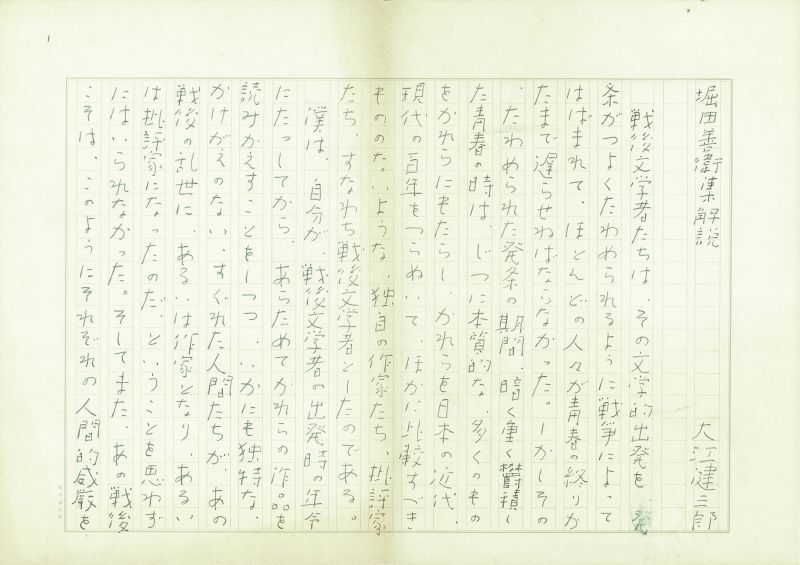 1
堀田善衞集解説 大江健三郎
戦後文学者たちは、その文学的出発を 発
条がつよくたわめられるように戦争によって
はばまれて、ほとんどの人々が青春の終りか
たまで遅らせねばならなかった。しかしその
、たわめられた発条の期間、暗く重く鬱積し
た青春の時は、じつに本質的な、多くのもの
をかれらにもたらし、かれらを日本の近代、
現代の百年をつらぬいて、ほかに比較すべき
もののないような、独自の作家たち、批評家
たち、すなわち戦後文学者としたのである。
僕は、自分が、戦後文学者の出発時の年令
にたっしてから、あらためてかれらの作品を
読みかえすことをしつつ、いかにも独特な、
かけがえのない、すぐれた人間たちが、あの
戦後の乱世に、あるいは作家となり、あるい
は批評家になったのだ、ということを思わず
にはいられなかった。そしてまた、あの戦後
こそは、このようにそれぞれの人間的威厳を